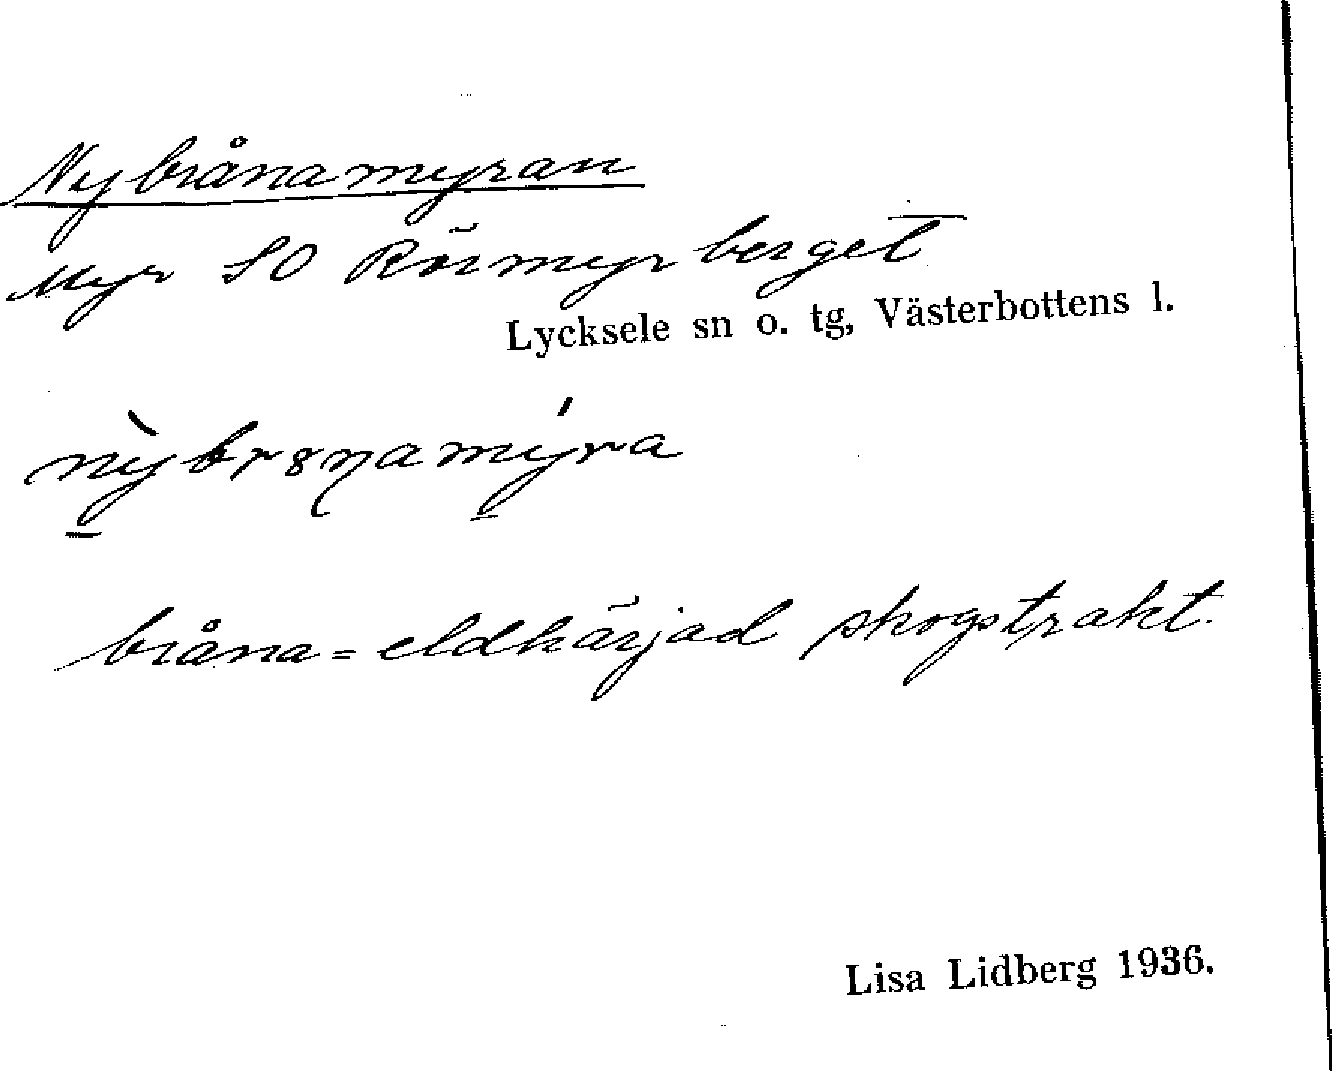 Nybrånamyran
Myr SO Rörmyrberget
Lycksele sn o. tg, Västerbottens l.
nỳbrȣŋamýra
bråna = eldhärjad skogstrakt.
Lisa Lidberg 1936.